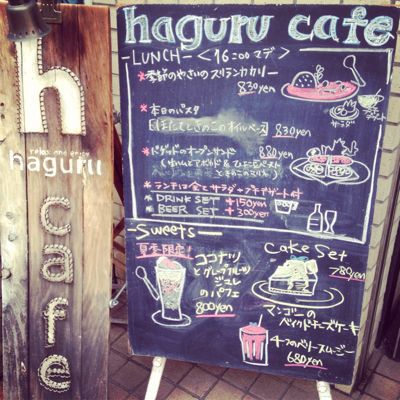 h
relax and enjoy
haguru
cafe
haguru cafe
LUNCH <16:00マデ>
*季節のやさいのスリランカカリー
830yen
サラダ
*本日のパスタ
ほたてときのこのオイルベース 830yen
880yen
*ランチには全てサラダ・プチデザート付
*DRINK SET +150yen
*BEER SET +300yen
Sweets
夏季限定!
ココナツ
とグレープフルーツ
ジュレ
のパフェ
800yen
cake set
780yen
マンゴーの
ベイクドチーズケーキ
4つのベリースムージー
680yen